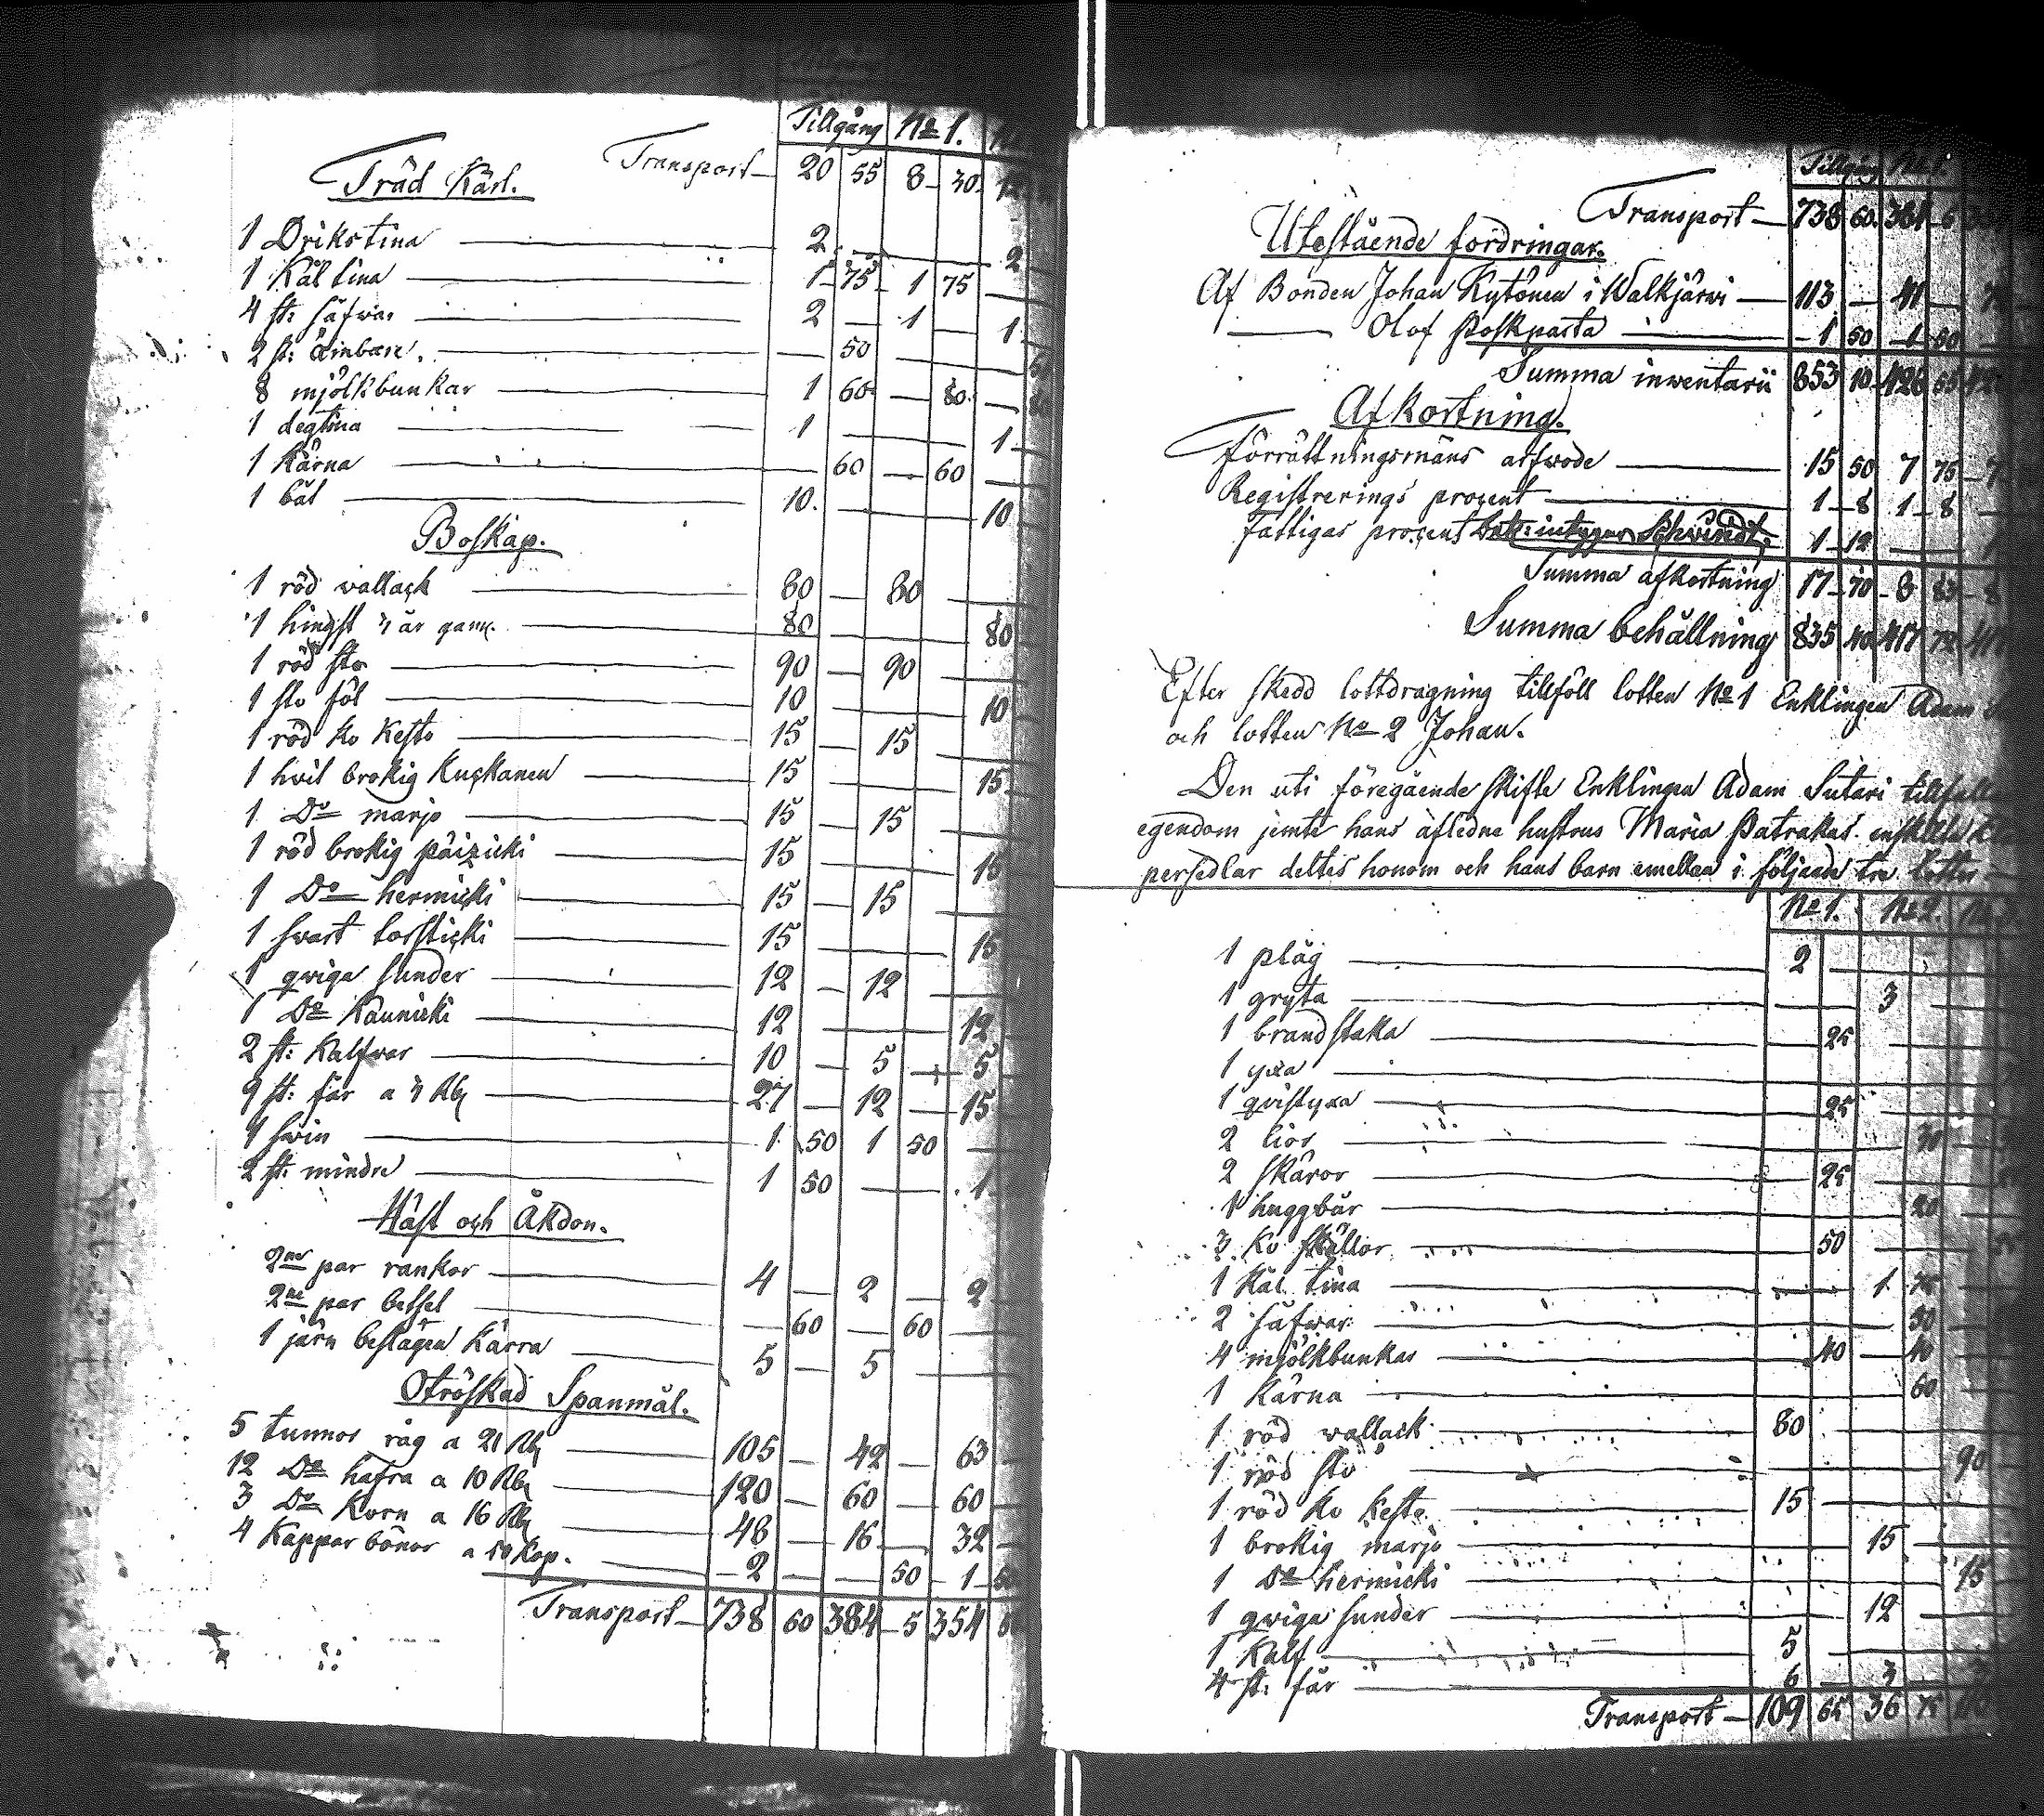 Tillgång No 1.
Transport 20 55 8 30
Träd Kärl.
1 Drikstina 2 2
1 Kåltina 1 75 1 75
4 st: såfwar 2 1 1
2 st: ämbare. 50
8 mjölkbunkar 1 60 80
1 degtina 1 1
1 kärna 60 60
1 båt 10. 10
Boskap.
1 röd wallack 80 80
1 hingst år gam. 80 80
1 röd sto 90 90
1 sto föl 10 10
1 röd ko Kesto 15 15
1 hvit brokig Kuckanen 15 15
1 Do marjo 15 15
1 röd brokig päizicki 15 15
1 Do hermicki 15 15
1 swart torsticki 15 15
1 qwiga sunder 12 12
1 Do Kaunicki 12 12
2 st: Kalfwar 10 5 5
9 st: får a Rbl 27 12 15
1 swin 1 50 1 50
2 st: mindre 1 50 1
Häst och Åkdon.
2ne par rankor 4 2 2
2ne par betsel 60 60
1 järn beslagen Kärra 5 5
Otröskad Spanmål.
5 tunnor råg a 21 Rbl 105 42 63
12 Do hafra a 10 Rbl 120 60 60
3 Do Korn a 16 Rbl 48 16 32
4 Kappar bönor a 50 Kop. 2 50 1 50
Transport 738 60 384 5 354
Tillgång No 1.
Transport 738 60 384 5
Utestående fordringar.
Af Bonden Johan Kytönen i Walkjärwi 113 41
Olof Poskparta 1 50 1 50
Summa inwentarii 853 10 426 55
Afkortning.
Förrättningsmäns arfwode 15 50 7 75
Registrerings procent 1 8 1 8
Fattigas procent intygar Schvindt. 1 12
Summa afkortning 17 70 8 83
Summa behållning 835 40 417 72
Efter skedd lottdragning tillföll lotten No 1 Enklingen Adam
och lotten No 2 Johan.
Den uti föregående skifte Enklingen Adam Sutari
egendom jemte hans afledne hustrus Maria Patrakas enskilda
persedlar deltes honom och hans barn emellan i följande tre lotter
No 1. No 2.
1 plåg 2
1 gryta 3
1 brandstaka 25
1 yxa
1 qvistyxa 25
2 liar 30
2 skäror 25
1 huggbår 20
3 Ko skällor 50
1 Kål tina 1 75
2 såfwar 50
4 mjölkbunkar 40 40
1 Kärna 60
1 röd wallack 80
1 röd sto 90
1 röd ko Kesto 15
1 brokig marjo 15
1 Do hermicki 15
1 qwiga sunder 12
1 Kalf 5
4 st: får 6 3
Transport 109 65 36 75